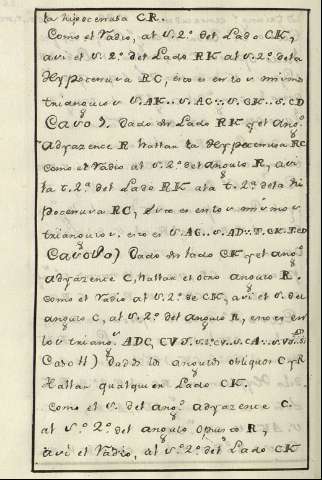 la hipotenusa CR.
Como el Radio, al S. 2º del Lado CK,
asi el S. 2º del Lado RK al S. 2º dela
Hypotenusa RC, esto es en los mismos
triangulos S. AK.. S. AG :: S. GK.. S. CD
Caso 7. Dado un Lado RK y el angº
Adyazente R hallar la Hypotenusa RC
Como el Radio al S. 2º del angulo R, asi
la t. 2ª del Lado RK ala t. 2ª dela hi
potenusa RC, esto es en los mismos
triangulos
Dado un lado CK y el angº
adyazente C, hallar el otro angulo R.
Como el Radio al S. 2º de CK, asi el S. del
angulo C, al S. 2º del angulo R, esto es en
los triangºs ADC,
Dados los angulos obliquos C y R
Hallar qualquier Lado CK.
Como el S. del angº adyazente C.
al S. 2º del angulo opuesto R,
asi el Radio, al S. 2º del Lado CK